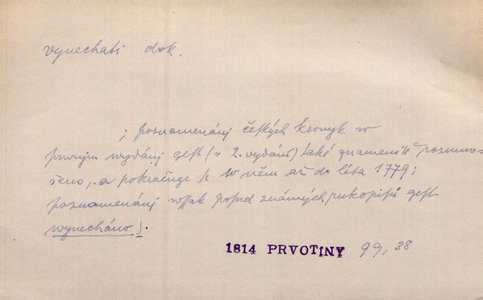 vynechati dok.
; poznamenánj českých kronyk w
prwnjm wydánj gest (v 2. vydání) také znamenitě
ženo, a pokračuge se w něm až do léta 1779;
poznamenánj wssak popsd známých rukopisů gest
wynecháno).
1814 PRVOTINY 99, 38